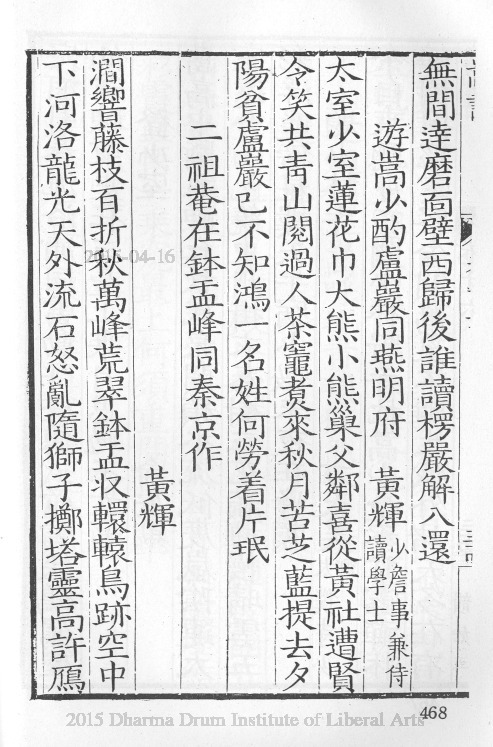 無間達磨靣壁西歸後誰讀楞嚴解八還
遊嵩少酌盧巖同燕明府 黃輝 少詹事兼侍讀學士
太室少室蓮花巾大熊小熊巢父鄰喜從黃社遭賢
令笑共靑山閱過人茶竈煑來秋月苦芝藍提去夕
陽貧盧巖已不知鴻一名姓何勞着片珉
二祖菴在鉢盂峰同秦京作
黃輝
澗響藤枝百折秋萬峰荒翠鉢盂收轘轅鳥跡空中
下河洛龍光天外流石怒亂隨獅子擲塔靈高許鴈
468
2015-04-16
2015 Dharma Drum Institute of Liberal Arts